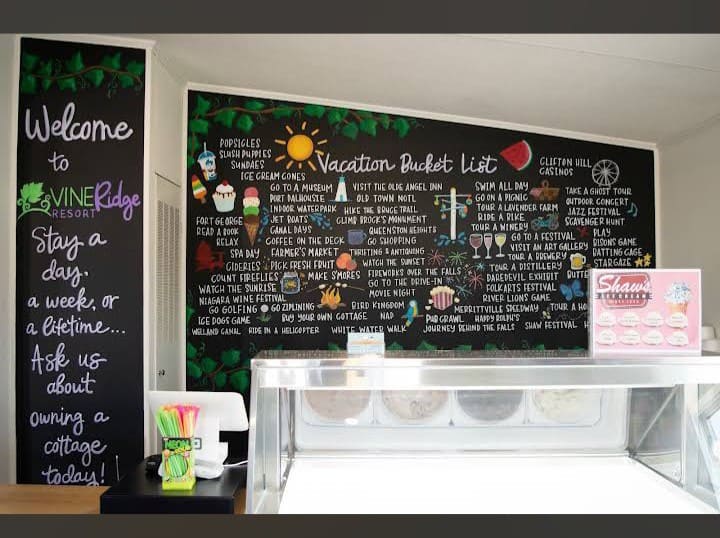 Welcome
to
VINERidge
RESORT
Stay a
day,
a week, or
a lifetime...
Ask us
about
owning a
cottage
today!
Vacation Bucket List
POPSICLES
SLUSH PUPPIES
SUNDAES
ICE CREAM CONES
GO TO A MUSEUM VISIT THE OLDE ANGEL INN SWIM ALL DAY
CLIFTON HILL
CASINOS
PORT DALHOUSIE OLD TOWN NOTL GO ON A PICNIC TAKE A GHOST TOUR
INDOOR WATERPARK HIKE THE BRUCE TRAIL TOUR A LAVENDER FARM OUTDOOR CONCERT
FORT GEORGE JET BOATS CLIMB BROCK'S MONUMENT RIDE A BIKE JAZZ FESTIVAL
READ A BOOK CANAL DAYS QUEENSTON HEIGHTS TOUR A WINERY SCAVENGER HUNT
RELAX COFFEE ON THE DECK GO SHOPPING GO TO A FESTIVAL PLAY
SPA DAY FARMER'S MARKET THRIFTING & ANTIQUING VISIT AN ART GALLERY BISONS GAME
CIDERIES PICK FRESH FRUIT WATCH THE SUNSET TOUR A BREWERY BATTING CAGE
COUNT FIREFLIES MAKE S'MORES FIREWORKS OVER THE FALLS TOUR A DISTILLERY STARGAZE
WATCH THE SUNRISE GO TO THE DRIVE-IN DAREDEVIL EXHIBIT
NIAGARA WINE FESTIVAL MOVIE NIGHT FOLKARTS FESTIVAL
GO GOLFING GO ZIPLINING BIRD KINGDOM RIVER LIONS GAME
ICE DOGS GAME BUY YOUR OWN COTTAGE NAP MERRITTVILLE SPEEDWAY TOUR A
PUB CRAWL HAPPY ROLPH'S
WELLAND CANAL RIDE IN A HELICOPTER WHITE WATER WALK JOURNEY BEHIND THE FALLS SHAW FESTIVAL
Shaw's
ICE CREAM
NEON